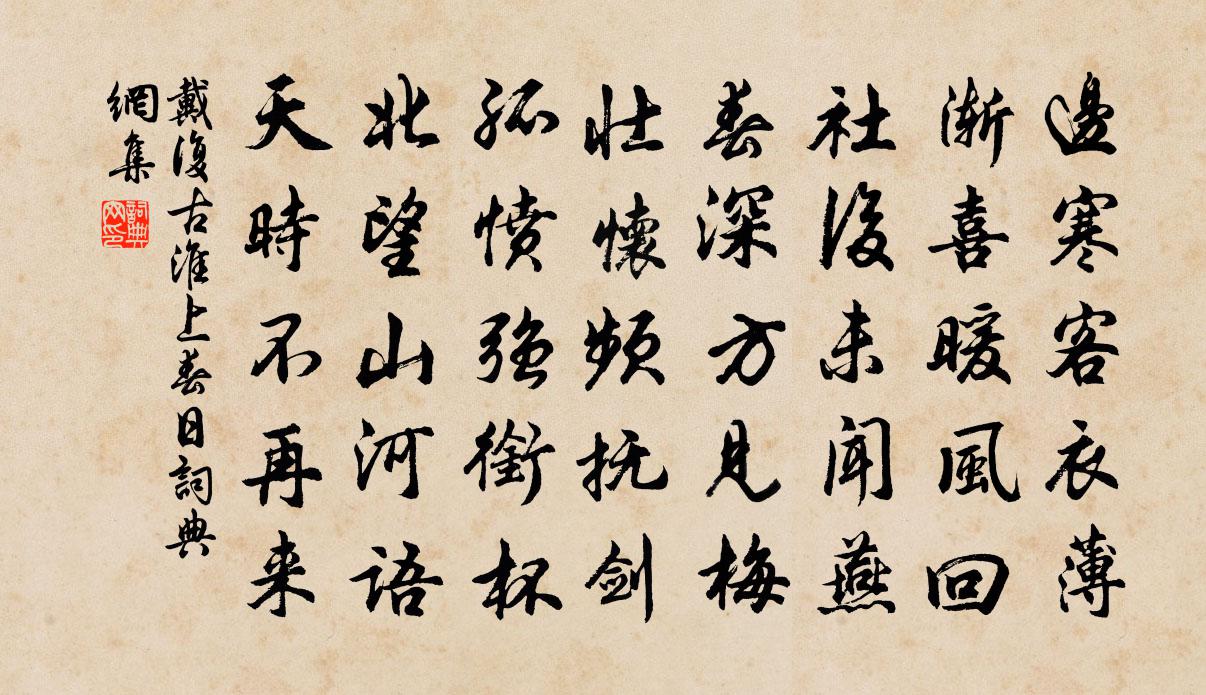 邊寒客衣薄
漸喜暖風回
社後未聞燕
春深方見梅
壯懷頻抚劍
孤愤强銜杯
北望山河語
天時不再来
戴復古淮上春日詞典
網集
詞典
网印